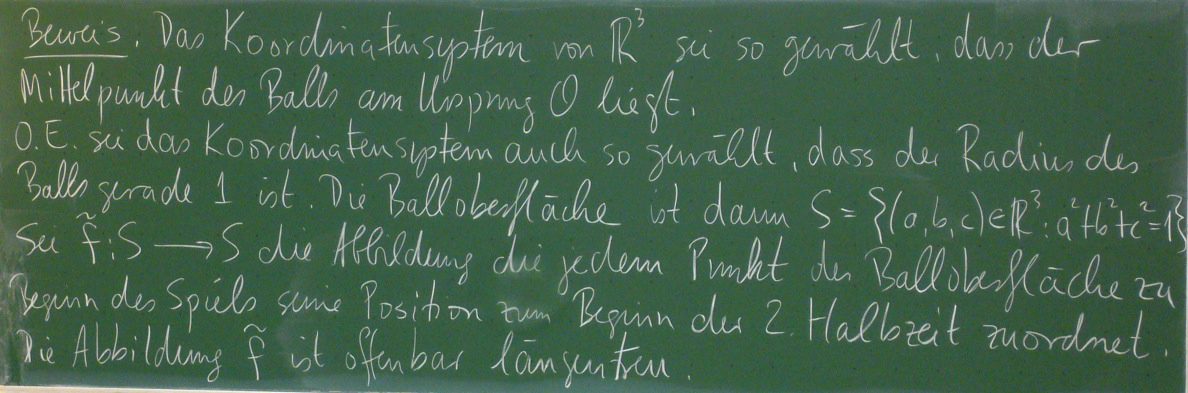 Beweis. Das Koordinatensystem von ℝ³ sei so gewählt, dass der
Mittelpunkt des Balls am Ursprung O liegt.
O.E. sei das Koordinatensystem auch so gewählt, dass der Radius des
Balls gerade 1 ist. Die Balloberfläche ist dann S = {(a,b,c)∈ℝ³: a²+b²+c²=1}
Sei f̃: S ⟶ S die Abbildung die jedem Punkt der Balloberfläche zu
Beginn des Spiels seine Position zum Beginn der 2. Halbzeit zuordnet.
Die Abbildung f̃ ist offenbar längentreu.